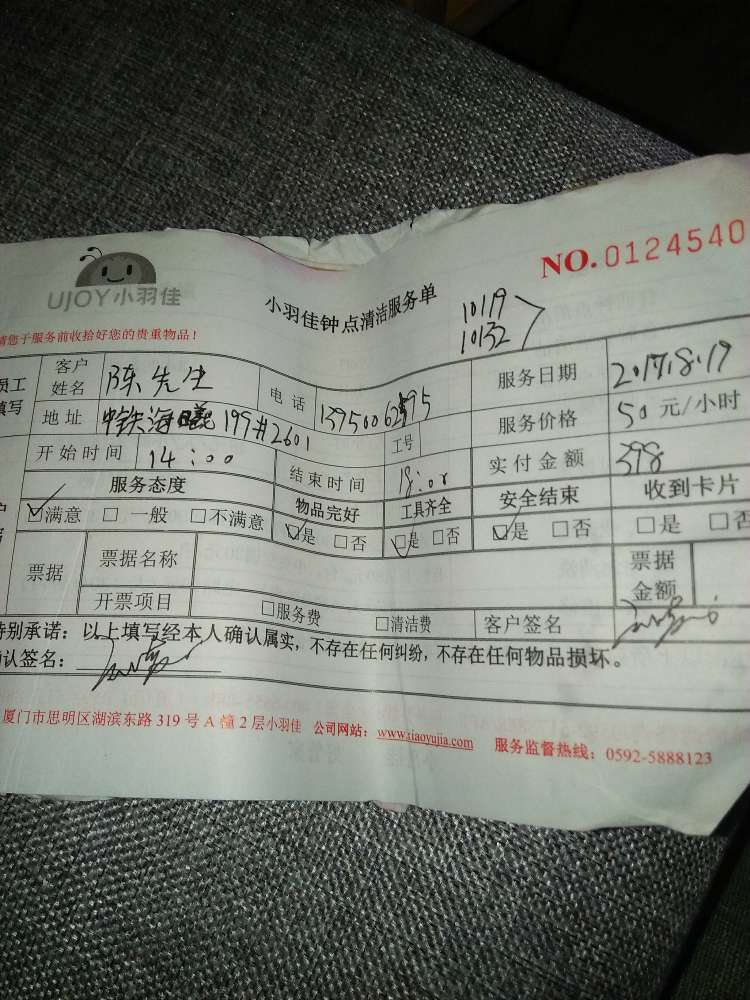 UJOY小羽佳
小羽佳钟点清洁服务单
NO.0124540
请您于服务前收拾好您的贵重物品！
10119
10132
员工填写
客户姓名 陈先生 电话 服务日期 2017.8.19
地址 中铁海曦199#2601 工号 服务价格 50元/小时
开始时间 14:00 结束时间 18:00 实付金额 398
服务态度 物品完好 工具齐全 安全结束 收到卡片
☑满意 □一般 □不满意 ☑是 □否 ☑是 □否 ☑是 □否 □是 □否
票据 票据名称 票据金额
开票项目 □服务费 □清洁费 客户签名
特别承诺：以上填写经本人确认属实，不存在任何纠纷，不存在任何物品损坏。
确认签名：
厦门市思明区湖滨东路319号A幢2层小羽佳 公司网站：www.xiaoyujia.com 服务监督热线：0592-5888123